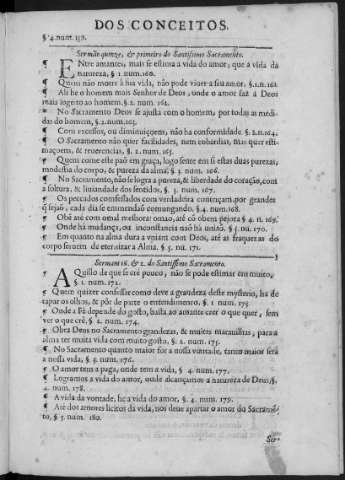 DOS CONCEITOS.
§ 4. num. 159.
Sermão quinze, & primeiro do Santissimo Sacramento.
ENtre amantes, mais se estima a vida do amor, que a vida da
natureza, § 1. num. 160.
¶ Quem não morre à sua vida, não pode viver a seu amor. §. 1. n. 161
¶ Ali he o homem mais Senhor de Deos, onde o amor faz à Deos
mais sogeito ao homem. §. 2. num. 162.
¶ No Sacramento Deos se ajusta com o homem, por todas as medi-
das do homem, §. 2. num. 163.
¶ Com excessos, ou diminuiçoens, não ha conformidade. §. 2. n. 164.
¶ O Sacramento não quer facilidades, nem cobardias, mas quer esti-
maçoens, & reverencias, §. 2. num. 165.
¶ Quem come este paõ em graça, logo sente em si estas duas purezas,
modestia do corpo, & pareza da alma, § 3. num. 166.
¶ No Sacramento, não se logra a pureza, & liberdade do coração, com
a soltura, & liviandade dos sentidos, §. 3. num. 167.
¶ Os peccados confessados com verdadeira contriçam, por grandes
q̃ sejaõ, cada dia se emmendaõ comungando. § 4. num. 168.
¶ Obẽ até com o mal melhora: o mao, até cõ o bem pejora § 4. n. 169.
¶ Onde hà mudança, ou inconstancia não hà uniõ. § 5. nũ. 170.
¶ Em quanto na alma dura a vniam com Deos, até as fraquezas do
corpo servem de eternizar a Alma. § 5. nu. 171.
Sermam 16. & 2. do Santissimo Sacramento.
AQuillo de que se ctè pouco, não se pode estimar em muito,
§ 1. num. 172.
¶ Quem quizer confessar como deve a grandeza deste mysterio, ha de
tapar os olhos, & pór de parte o entendimento. §. 1 num. 173.
¶ Onde a Fé depende do gosto, basta ao amante crer o que quer, sem
ver o que crè, §. 2. num. 174.
¶ Obra Deos no Sacramento grandezas, & muitas maravilhas, para a
alma ter muita vida com muito gosto. §. 2. num. 175.
¶ No Sacramento quanto maior for a nossa vontade, tanto maior serà
a nossa vida, § 3. num. 176.
¶ O amor tem a paga, onde tem a vida, §. 4. num. 177.
¶ Logramos a vida do amor, onde alcançamos a natureza de Deus §.
4. num. 178.
¶ A vida da vontade, he a vida do amor, §. 4. num. 179.
¶ Até dos amores licitos da vida, nos deve apartar o amor do Sacramẽ-
to, § 5. num. 180.
Ser-